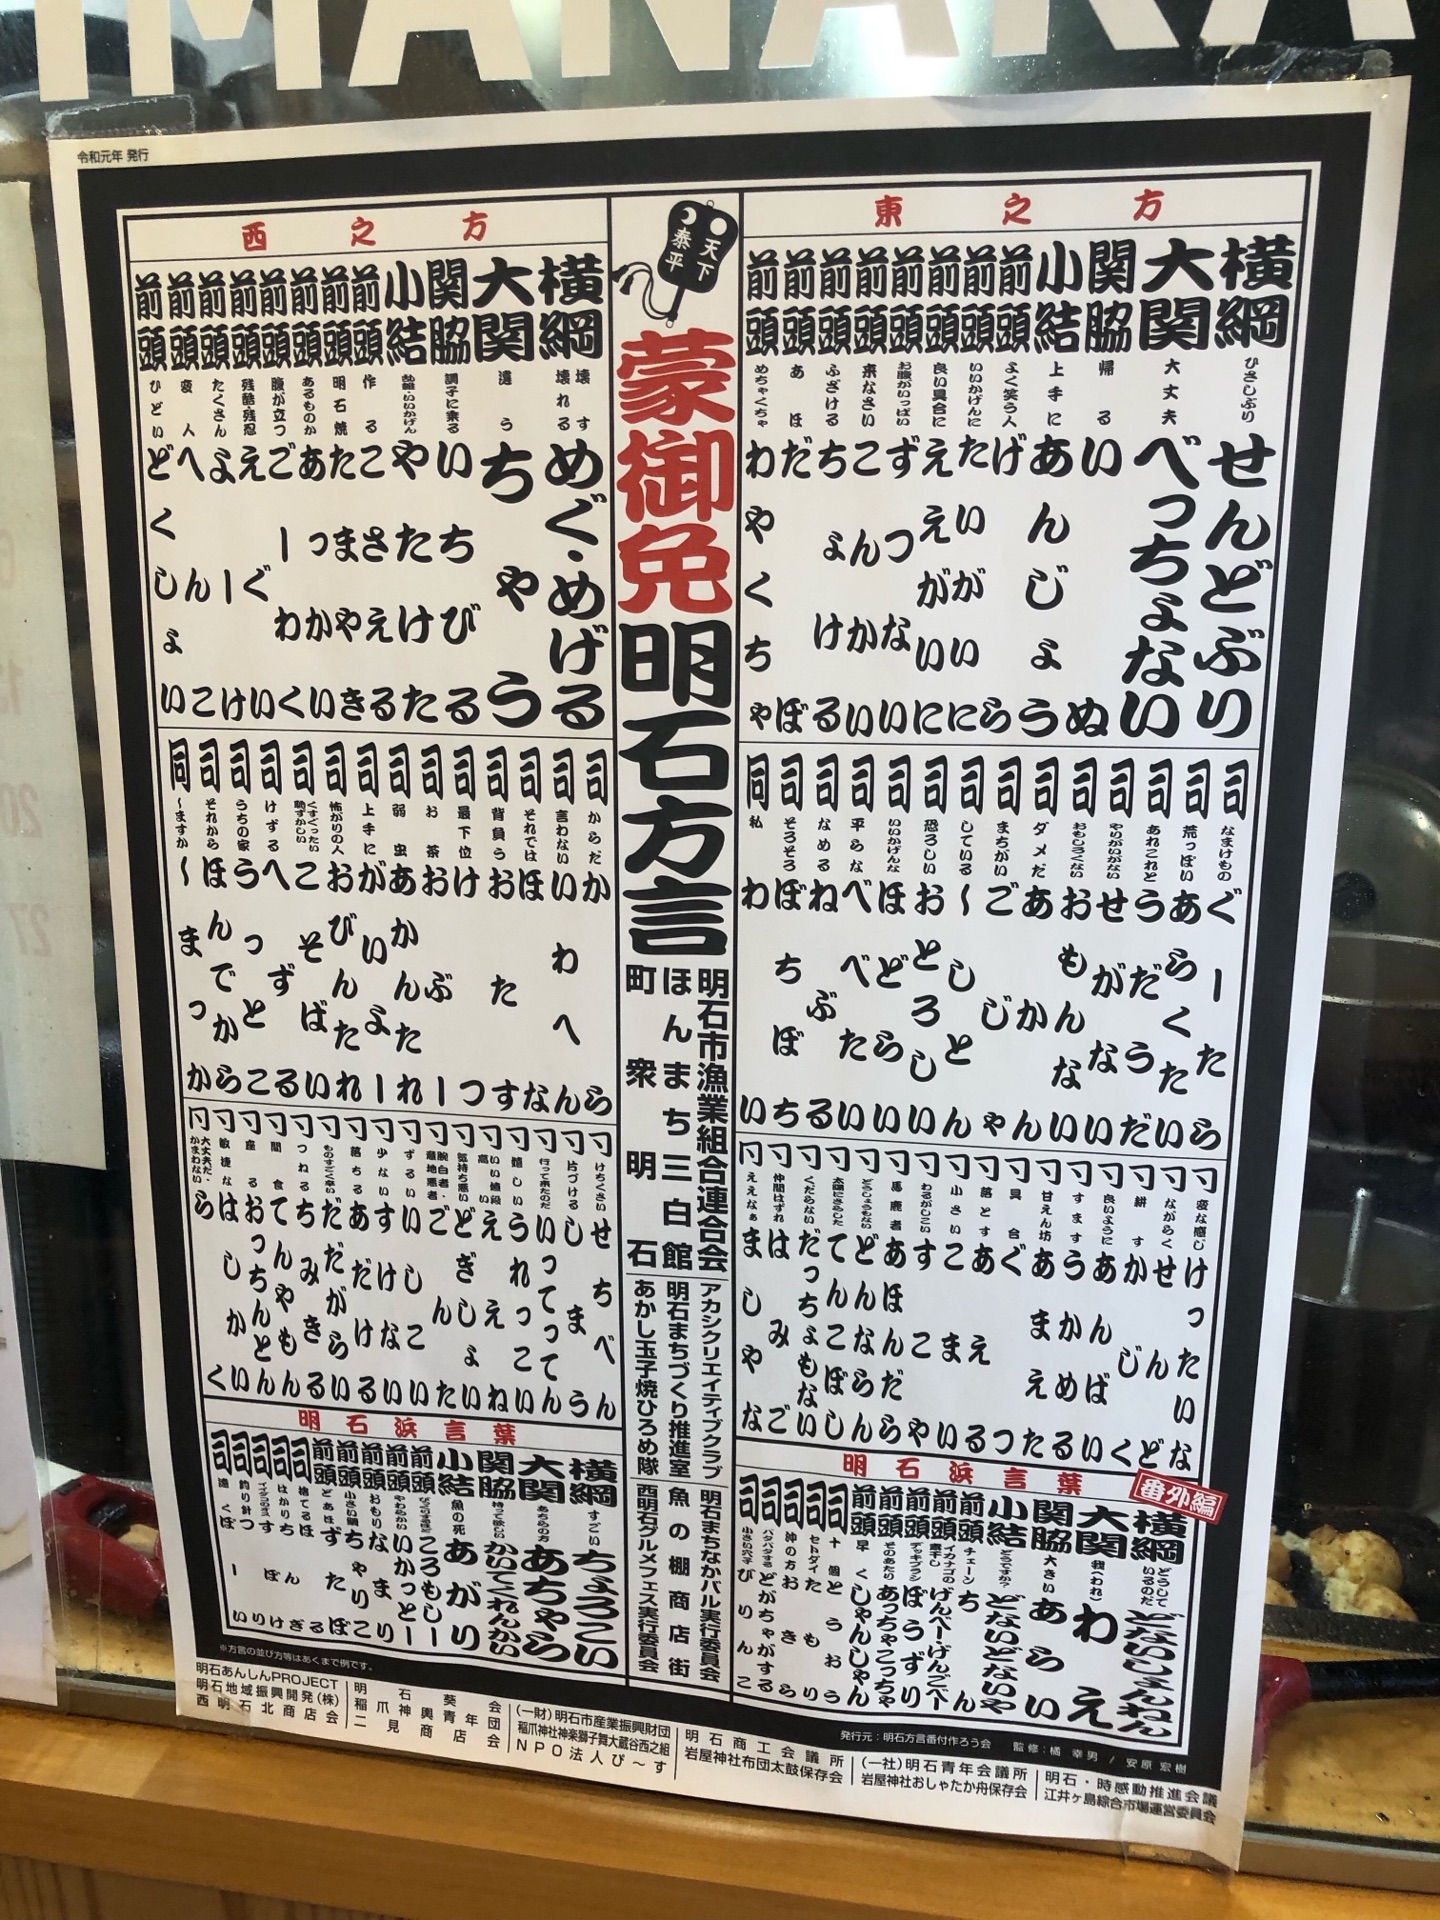 IMANAKA
令和元年 発行
天下泰平
蒙御免 明石方言
東之方
横綱 ひさしぶり せんどぶり
大関 大丈夫 べっちょない
関脇 帰る いぬ
小結 上手に あんじょう
前頭 よく笑う人 げら
前頭 いいかげんに たいがいに
前頭 良い具合に ええがいに
前頭 お腹がいっぱい ずつない
前頭 来なさい こんかい
前頭 ふざける ちょける
前頭 あほ だぼ
前頭 めちゃくちゃ わやくちゃ
同 なまけもの ぐーたら
同 荒っぽい あらくたい
同 あれこれと うだうだ
同 やりがいがない せがない
同 おもしろくない おもんない
同 ダメだ あかん
同 まちがい ごじゃ
同 している 〜しとん
同 恐ろしい おとろしい
同 いいかげんな ほどらい
同 平らな べべたい
同 なめる ねぶる
同 そろそろ ぼちぼち
同 私 わい
同 変な感じ けったいな
同 ながらく せんど
同 耕す かじく
同 良いように あんばい
同 すます うかめる
同 甘えん坊 あまえた
同 具合 ぐつ
同 落とす あえる
同 小さい こまい
同 わるがしこい すこい
同 馬鹿者 あほんだら
同 どうしようもない どんならん
同 太陽にさらした てんこぼし
同 くだらない だっちょもない
同 仲間はずれ はみご
同 ええなぁ ましやな
西之方
横綱 壊す 壊れる めぐ・めげる
大関 違う ちゃう
関脇 調子に乗る いちびる
小結 いいかげん やたけた
前頭 作る こさえる
前頭 明石焼 たまやき
前頭 あるものか あっかい
前頭 腹が立つ ごーわく
前頭 残酷・残忍 えぐい
前頭 たくさん よーけ
前頭 変人 へんこ
前頭 ひどい どくしょい
同 からだ から
同 言わない いわへん
同 それでは ほな
同 背負う おたす
同 最下位 けつ
同 お茶 おぶー
同 弱虫 あかんたれ
同 上手に がいよー
同 怖がりの人 おびんたれ
同 くすぐったい 恥ずかしい こそばい
同 けずる へずる
同 うちの家 うっとこ
同 それから ほんでから
同 〜ますか 〜まっか
同 けちくさい せちべん
同 片づける しまう
同 行って来たのだ いってってん
同 嬉しい うれっこい
同 いい値段 高い ええね
同 気持ち悪い どぎしょい
同 腕白者・意地悪者 ごんた
同 ずるい いしこい
同 少ない すけない
同 落ちる あだける
同 ものすごく辛い だだがらい
同 つねる ちみきる
同 間食 てんやもん
同 座る おっちんとん
同 敏捷な はしかい
同 大丈夫だ・かまわない らく
明石浜言葉
番外編
横綱 どうしているのだ どないしょんねん
大関 我(われ) わえ
関脇 大きい あらい
小結 どうですか? どないどないや
前頭 チェーン ちん
前頭 イカナゴの煮干し げんべーげんごべー
前頭 デッキブラシ ぼうずり
前頭 そのあたり あっちゃこっちゃ
前頭 早く しゃんしゃん
同 十個
同 セトダイ たもり
同 沖の方 おきら
同 バタバタする どがちゃがする
同 小さい穴子 びりんこ
明石浜言葉
横綱 すごい ちょろこい
大関 あちらの方 あちゃら
関脇 待って欲しい かいてくれんかい
小結 魚の死 あがり
前頭 ころもしー
前頭 やわらかい いかっとー
前頭 おもり なまり
前頭 小さい鯛 ちゃりこ
前頭 どあほ ずたぼ
同 捨てる ほる
同 はかり ちんぎ
同 すぼけ
同 釣り針 つり
同 遠く ぽーい
明石市漁業組合連合会
ほんまち三白館
町衆明石
アカシクリエイティブクラブ
明石まちづくり推進室
あかし玉子焼ひろめ隊
明石まちなかバル実行委員会
魚の棚商店街
西明石グルメフェス実行委員会
※方言の並び方等はあくまで例です。
発行元:明石方言番付作ろう会 監修:橘 幸男 / 安原 宏樹
明石あんしんPROJECT
明石地域振興開発(株)
西明石北商店会
明石葵会
稲爪神輿青年団
二見商店会
(一財)明石市産業振興財団
稲爪神社神楽獅子舞大蔵谷西之組
NPO法人ぴ〜す
明石商工会議所
岩屋神社布団太鼓保存会
(一社)明石青年会議所
岩屋神社おしゃたか舟保存会
明石・時感動推進会議
江井ヶ島綜合市場運営委員会